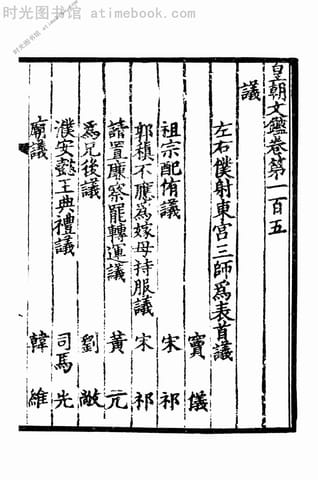 时光图书馆 - atimebook.com
时光图书馆 atimebook.com
皇朝文鑑卷第一百五
議
左右僕射東宮三師爲表首議
竇儀
祖宗配侑議 宋祁
郭稹不應爲嫁母持服議 宋祁
請置廉察罷轉運議 黃亢
爲兄後議 劉敞
濮安懿王典禮議 司馬光
廟議 韓維